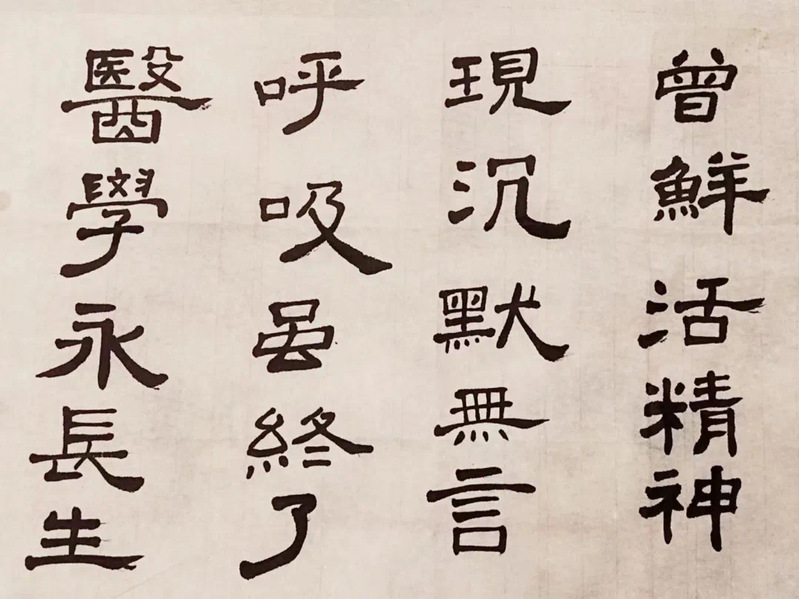 曾鮮活精神
現沉默無言
呼吸虽終了
醫學永長生